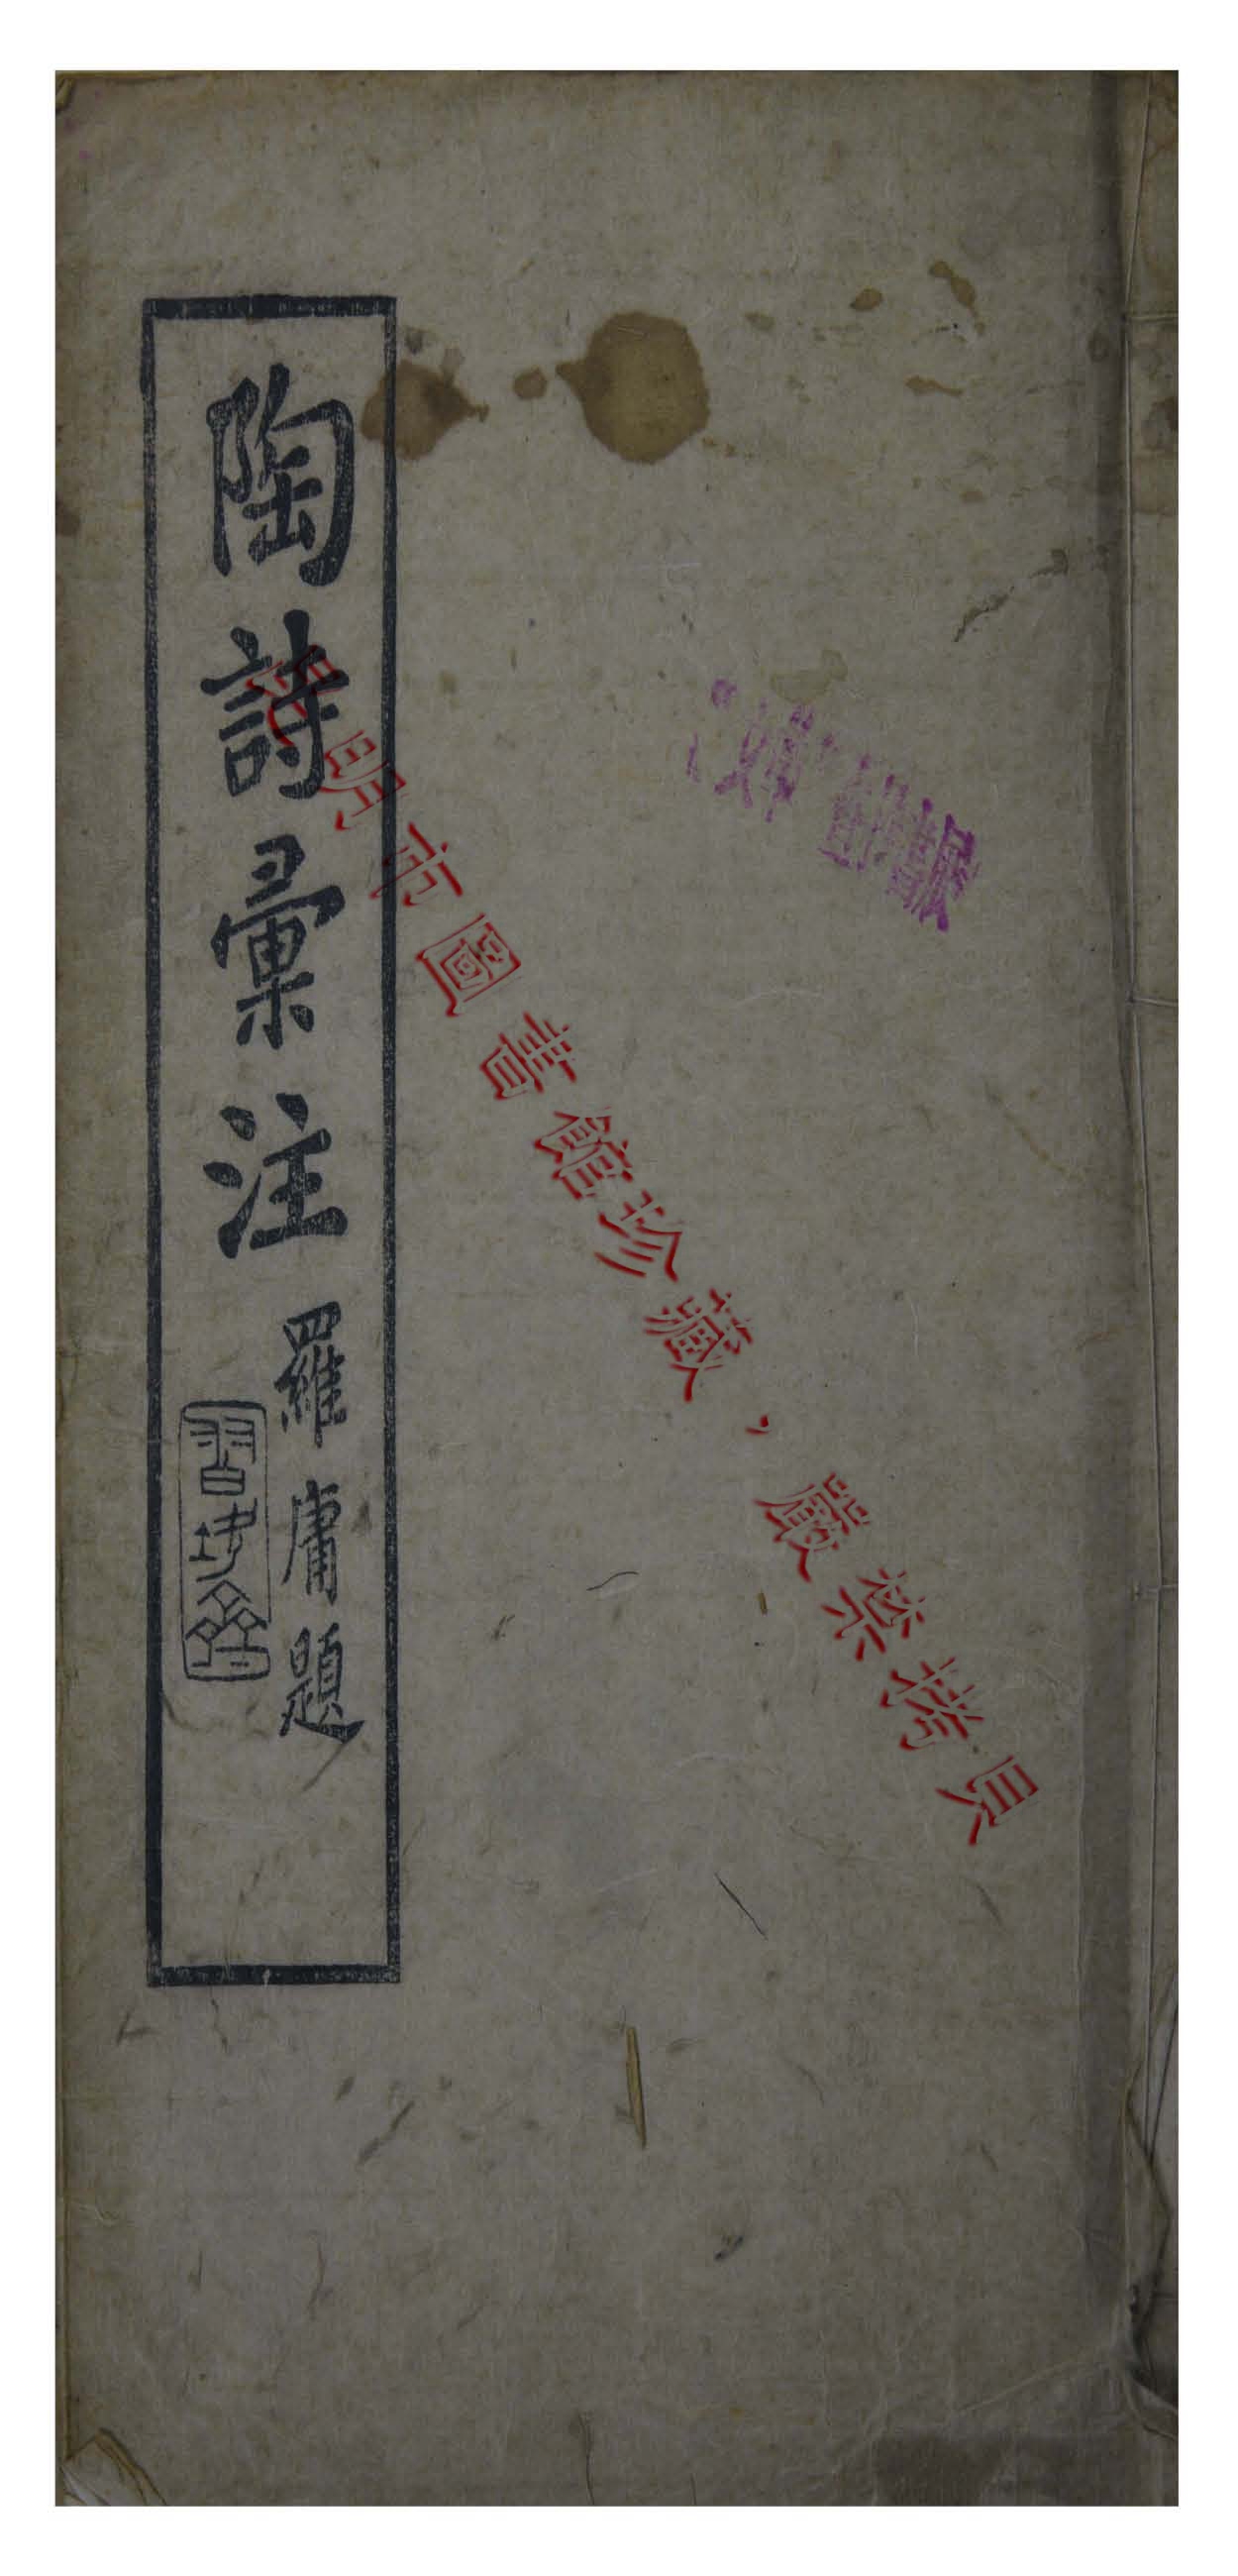 陶詩彙注
羅庸題
昆明市圖書館珍藏，嚴禁拷貝